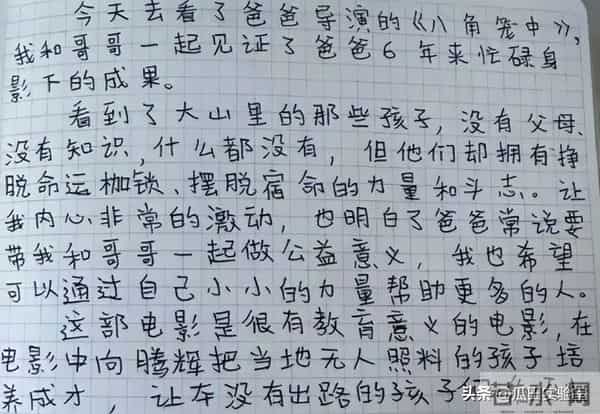 今天去看了爸爸导演的《八角笼中》，
我和哥哥一起见证了爸爸6年来忙碌身
影下的成果。
看到了大山里的那些孩子，没有父母、
没有知识，什么都没有，但他们却拥有挣
脱命运枷锁、摆脱宿命的力量和斗志。让
我内心非常的激动，也明白了爸爸常说要
带我和哥哥一起做公益意义，我也希望
可以通过自己小小的力量帮助更多的人。
这部电影是很有教育意义的电影，在
电影中向腾辉把当地无人照料的孩子培
养成才，让本没有出路的孩子
头条